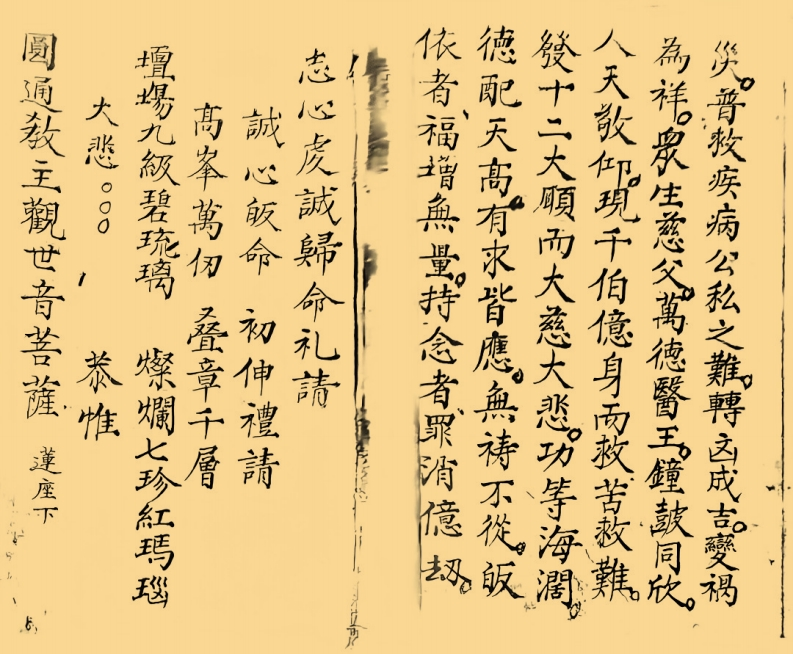 災。普救疾病公私之難。轉凶成吉。變禍
為祥。眾生慈父。萬德醫王。鐘皷同欣。
人天敬仰。現千伯億身而救苦救難。
發十二大願而大慈大悲。功等海濶。
德配天高。有求皆應。無祷不從。皈
依者、福增無量。持念者、罪消億劫。
志心虔誠歸命礼請
誠心皈命 初伸禮請
高峯萬仞 叠章千層
壇場九級碧琉璃 燦爛七珍紅瑪瑙
大悲○○○ 恭惟
圓通教主觀世音菩薩 蓮座下